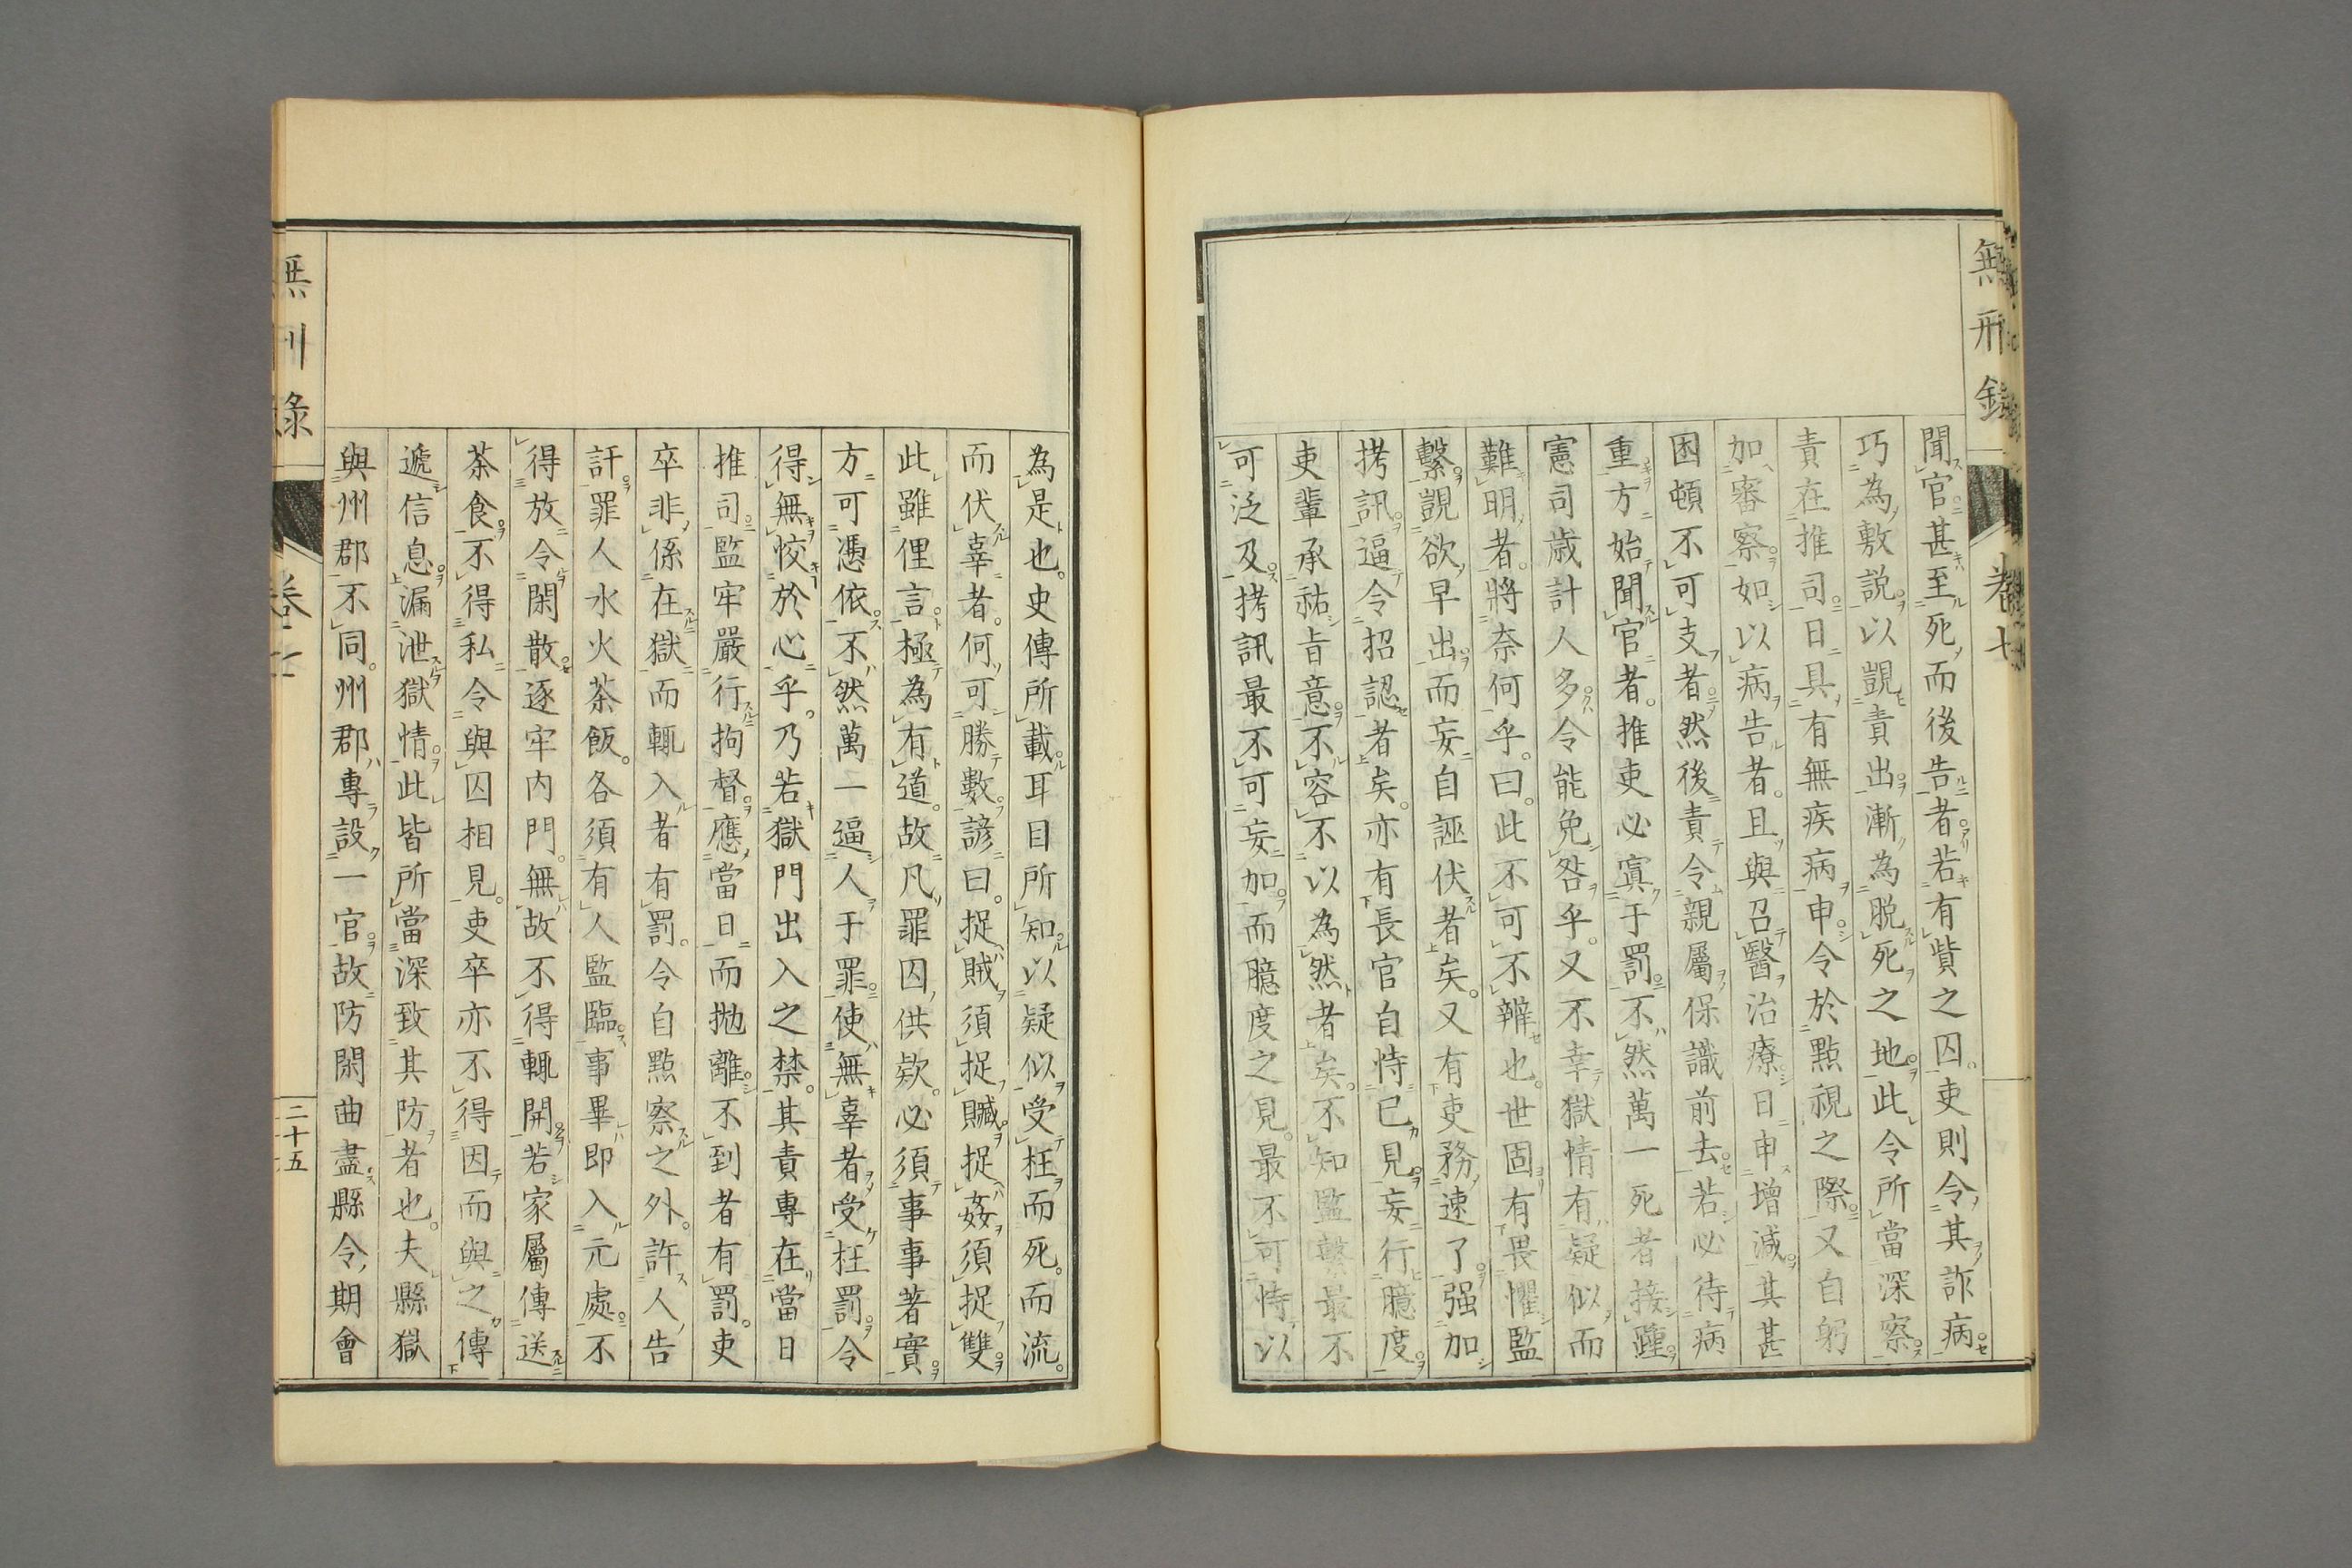 無刑錄
卷七
聞官甚至死而後告者若有貲之囚。吏則令其詐病
巧為敷説以覬責出漸為脱死之地此令所當深察
責在推司日具有無疾病申令於點視之際又自躬
加審察如以病告者。且與召醫治療日申增減其甚
困頓不可支者然後責令親屬保識前去若必待病
重方始聞官者。推吏必寘于罰不然萬一死者接踵
憲司歳計人多令能免咎乎。又不幸獄情有疑似而
難明者。將奈何乎。曰。此不可不辨也。世固有畏懼監
繫覬欲早出而妄自誣伏者矣。又有吏務速了强加
拷訊逼令招認者矣。亦有長官自恃已見妄行臆度
吏輩承祐旨意不容不以為然者矣。不知監繫最不
可泛及拷訊最不可妄加而臆度之見。最不可恃以
為是也。史傳所載耳目所知以疑似受枉而死。而流。
而伏辜者。何可勝數諺曰。捉賊須捉贓捉姦須捉雙
此雖俚言極為有道。故凡罪囚供欵。必須事事著實
方可憑依不然萬一逼人于罪使無辜者受枉罰令
得無恔於心乎。乃若獄門出入之禁。其責專在當日
推司監牢嚴行拘督應當日而抛離不到者有罰。吏
卒非係在獄而輒入者有罰。令自點察之外。許人告
訐罪人水火茶飯。各須有人監臨事畢即入元處不
得放令閑散逐牢内門。無故不得輒開若家屬傳送
茶食不得私令與囚相見。吏卒亦不得因而與之傳
遞信息漏泄獄情此皆所當深致其防者也。夫縣獄
與州郡不同。州郡專設一官故防閑曲盡縣令期會
無刑錄
卷七
二十五